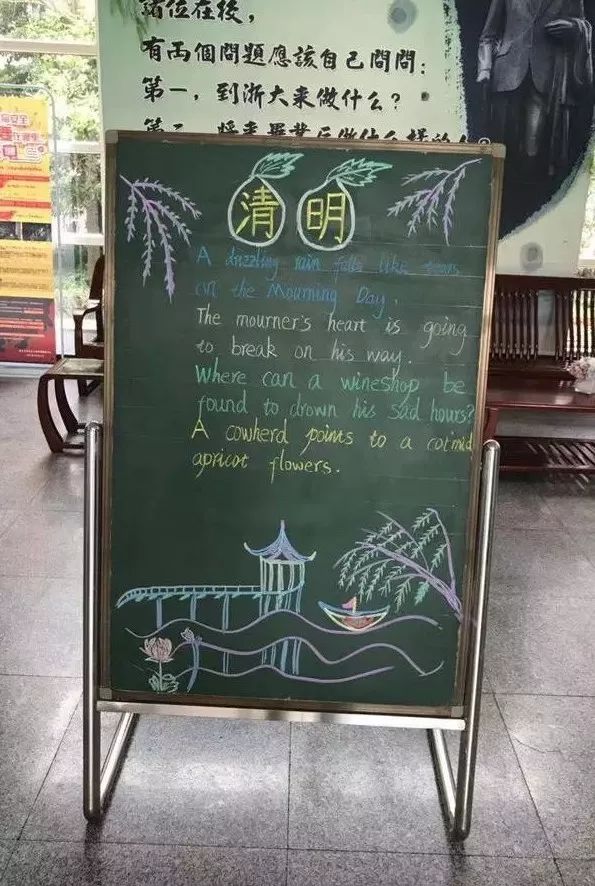 諸位在校，
有兩個問題應該自己問問：
第一，到浙大来做什么？
第二，将来畢業后做什么様的
清明
A drizzling rain falls like tears
on the Mourning Day.
The mourner's heart is going
to break on his way.
Where can a wineshop be
found to drown his sad hours?
A cowherd points to a cot mid
apricot flowers.